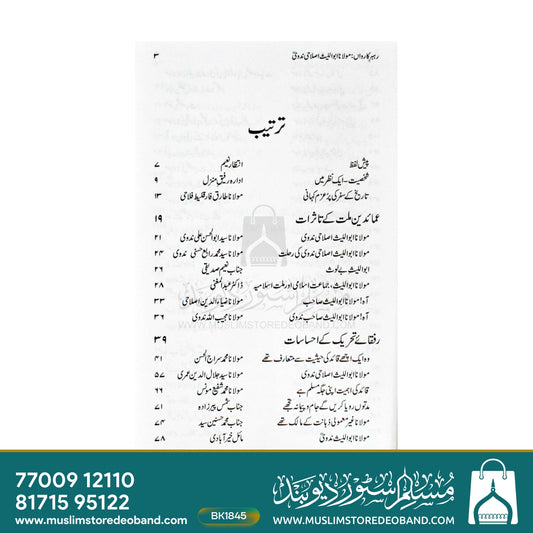 رہبر کارواں: مولانا ابواللیث اصلاحی ندویؒ ۳
ترتیب
پیش لفظ انتظار نعیم ۷
شخصیت - ایک نظر میں ادارہ رفیق منزل ۹
تاریخ کے سفر کی پُرعزم کہانی مولانا طارق فارقلیط فلاحی ۱۳
عمائدین ملت کے تاثرات ۱۹
مولانا ابواللیث اصلاحی ندوی مولانا سید ابوالحسن علی ندوی ۲۱
مولانا ابواللیث اصلاحی ندوی کی رحلت مولانا سید محمد رابع حسنی ندوی ۲۴
ابواللیث بے لوث جناب نعیم صدیقی ۲۶
مولانا ابواللیث، جماعت اسلامی اور ملت اسلامیہ ڈاکٹر عبدالمغنی ۲۸
آہ! مولانا ابواللیث صاحب مولانا ضیاء الدین اصلاحی ۳۳
آہ! مولانا ابواللیث صاحب ندوی مولانا مجیب اللہ ندوی ۳۶
رفقائے تحریک کے احساسات ۳۹
وہ ایک اچھے قائد کی حیثیت سے متعارف تھے مولانا محمد سراج الحسن ۴۱
مولانا ابواللیث اصلاحی ندوی مولانا سید جلال الدین عمری ۵۷
قائد کی اہمیت اپنی جگہ مسلم ہے مولانا محمد شفیع مونس ۶۶
مدتوں رویا کریں گے جام و پیمانہ تجھے جناب شمس پیرزادہ ۷۱
مولانا غیر معمولی ذہانت کے مالک تھے جناب محمد حسنین سید ۷۴
مولانا ابواللیث ندویؒ مائل خیرآبادی ۷۸
مسلم سٹور دیوبند
WWW.MUSLIMSTOREDEOBAND.COM
77009 12110
81715 95122
www.muslimstoredeoband.com
BK1845
مسلم سٹور دیوبند
WWW.MUSLIMSTOREDEOBAND.COM